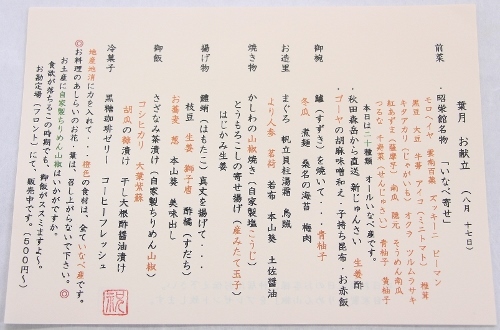 葉月　お献立　（八月　十七日）
前菜　・昭栄館名物　「いなべ寄せ」
モロヘイヤ　雲南百薬　ズッキーニ　ピーマン
黒豆　大豆　牛蒡　アイコ（ミニトマト）　椎茸
キタアカリ（じゃがいも）　オクラ　ツルムラサキ
紅あずま（薩摩芋）　南瓜　隠元　そうめん南瓜
つるな　千寿菜（せんじゅさい）　青柚子　黄柚子
本日は二十種類　オールいなべ産です。
・秋田森岳から直送　新じゅんさい　生姜酢
・ゴーヤの胡麻味噌和え　・子持ち昆布　・お赤飯
御椀　鱸（すずき）を焼いて・・・　青柚子
冬瓜　煮麺　桑名の海苔　梅肉
お造里　まぐろ　帆立貝粒湯霜　烏賊
より人参　茗荷　若布　本山葵　土佐醤油
焼き物　かしわの山椒焼き（自家製塩こうじ）
とうもろこしの寄せ揚げ（産みたて玉子）
はじかみ生姜
揚げ物　鱧蛸（はもたこ）真丈を揚げて・・・・
枝豆　生姜　獅子唐　酢橘（すだち）
お蕎麦　葱　本山葵　美味出し
御飯　さざなみ茶漬け（自家製ちりめん山椒）
コシヒカリ　大葉紫蘇
胡瓜の糠漬け　干し大根酢醤油漬け
冷菓子　黒糖珈琲ゼリー　コーヒーフレッシュ
地産地消に力を入れて・・橙色の食材は、全ていなべ産です。
◎お料理のあしらいのお花、葉は、召し上がらないで下さい。
お土産に自家製ちりめん山椒はいかがですか。◎
食欲が落ちるこの時期でも、御飯がススミますよ〜。
お勘定場（フロント）にて、販売中です。（５００円〜）